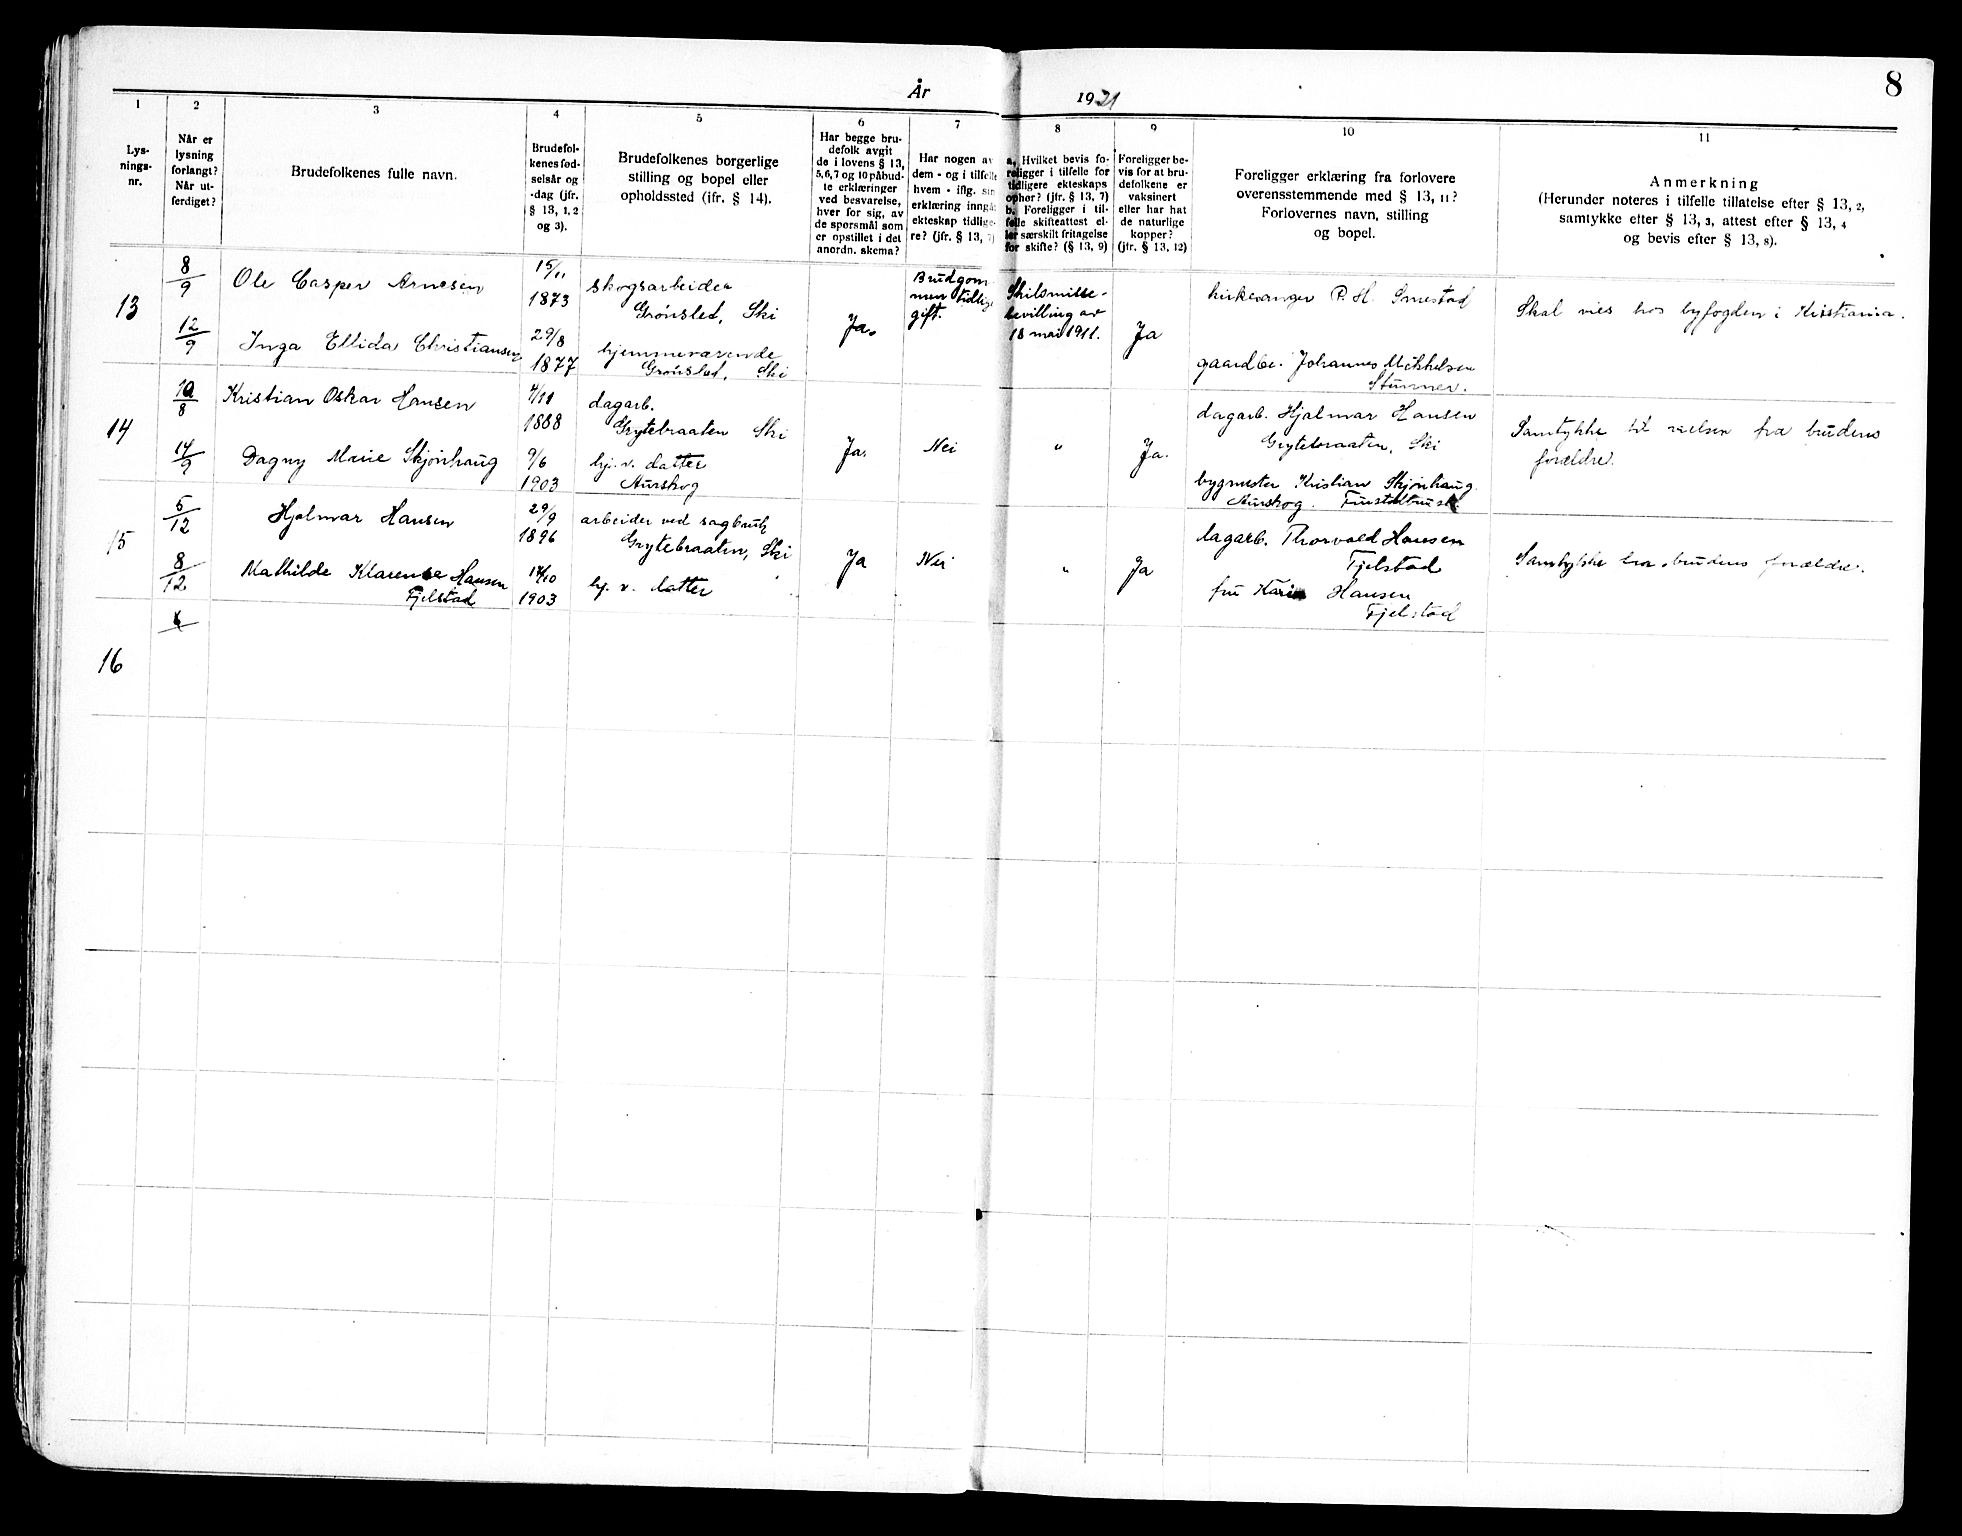 8
År 1921
1
Lys-
nings-
nr.
2
Når er
lysning
forlangt?
Når ut-
ferdiget?
3
Brudefolkenes fulle navn.
4
Brudefol-
kenes fød-
selsår og
-dag (jfr.
§ 13, 1, 2
og 3).
5
Brudefolkenes borgerlige
stilling og bopel eller
opholdssted (jfr. § 14).
6
Har begge bru-
defolk avgit
de i lovens § 13,
5,6,7 og 10 påbud-
te erklæringer
ved besvarelse,
hver for sig, av
de spørsmål som
er opstillet i det
anordn. skema?
7
Har nogen av
dem - og i tilfelle
hvem - iflg. sin
erklæring inngåt
ekteskap tidlige-
re? (jfr. § 13, 7)
8
a. Hvilket bevis fo-
religger i tilfelle for
tidligere ekteskaps
ophør? (jfr. § 13, 7)
b. Foreligger i til-
felle skifteattest el-
ler særskilt fritagelse
for skifte? (§ 13, 9)
9
Foreligger be-
vis for at bru-
defolkene er
vaksinert
eller har hat
de naturlige
kopper?
(jfr. § 13, 12)
10
Foreligger erklæring fra forlovere
overensstemmende med § 13, 11?
Forlovernes navn, stilling
og bopel.
11
Anmerkning
(Herunder noteres i tilfelle tillatelse efter § 13, 2,
samtykke efter § 13, 3, attest efter § 13, 4
og bevis efter § 13, 8).
13
8/9
12/9
Ole Casper Arnesen
Inga Ellida Christiansen
15/11
1873
29/8
1877
skogsarbeider
Grønsled, Ski
hjemmeværende
Grønsled, Ski
Ja.
Brudgom
men tidlige
gift.
Skilsmisse-
bevilling av
18 mai 1911.
Ja
kirkesanger P. H. Smestad
gaardbr. Johannes Mikkelsen
Stunner.
Skal vies hos byfogden i Kristiania.
14
10/8
14/9
Kristian Oskar Hansen
Dagny Marie Skjønhaug
4/11
1888
9/6
1903
dagarb.
Grytebraaten Ski
hj. v. datter
Aurskog
Ja.
Nei
"
Ja.
dagarb. Hjalmar Hansen
Grytebraaten, Ski
bygmester Kristian Skjønhaug.
Aurskog.
Samtykke til vielsen fra brudens
forældre.
15
5/12
8/12
Hjalmar Hansen
Mathilde Klarense Hansen
Fjelstad
29/9
1896
14/10
1903
arbeider ved sagbruk
Grytebraaten, Ski
hj. v. datter
Ja
Nei
"
Ja
dagarb. Thorvald Hansen
Fjelstad
fru Karin Hansen
Fjelstad
Samtykke fra brudens forældre.
16